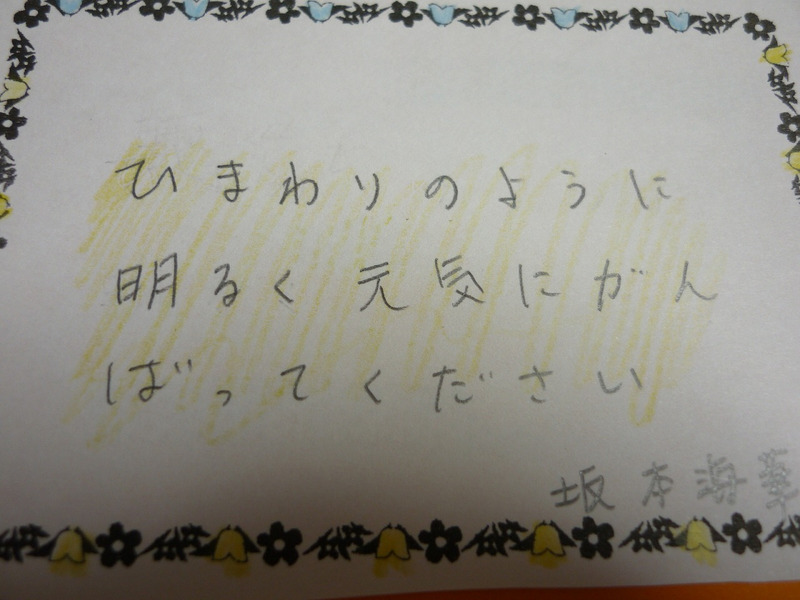 ひまわりのように
明るく元気にがん
ばってください
坂本海華